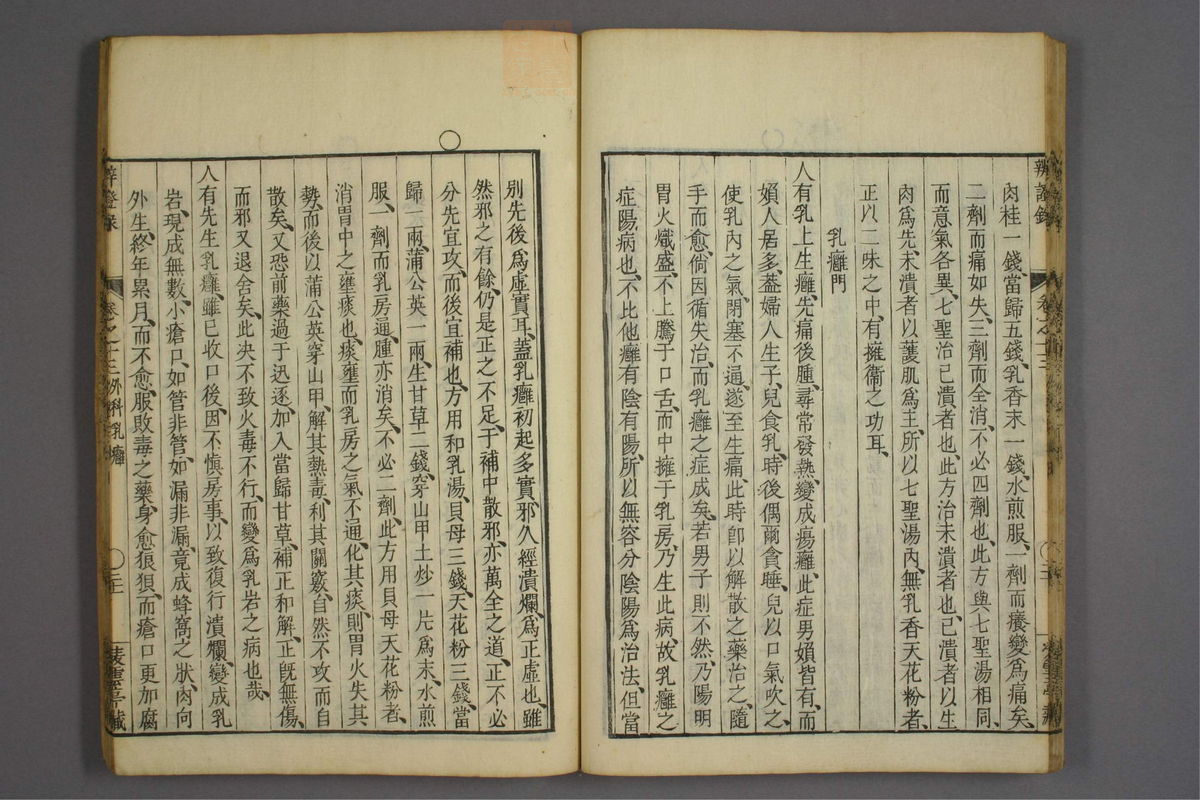 辨證錄
肉桂一錢、當歸五錢、乳香末一錢、水煎服、一劑而癢變爲痛矣、
二劑而痛如失、三劑而全消、不必四劑也、此方與七聖湯相同、
而意氣各異、七聖治已潰者也、此方治未潰者也、已潰者以生
肉爲先、未潰者以護肌爲主、所以七聖湯內、無乳香天花粉者、
正以二味之中、有擁衞之功耳、
乳癰門
人有乳上生癰、先痛後腫、尋常發熱、變成瘍癰、此症男婦皆有、而
婦人居多、葢婦人生子、兒食乳時、後偶爾貪睡、兒以口氣吹之、
使乳內之氣、閉塞不通、遂至生痛、此時卽以解散之藥治之、隨
手而愈、倘因循失治、而乳癰之症成矣、若男子則不然、乃陽明
胃火熾盛、不上騰于口舌、而中擁于乳房、乃生此病、故乳癰之
症、陽病也、不比他癰有陰有陽、所以無容分陰陽爲治法、但當
別先後爲虛實耳、葢乳癰初起多實邪、久經潰爛、爲正虛也、雖
然邪之有餘、仍是正之不足、于補中散邪、亦萬全之道、正不必
分先宜攻、而後宜補也、方用和乳湯、貝母三錢、天花粉三錢、當
歸一兩、蒲公英一兩、生甘草二錢、穿山甲土炒一片、爲末、水煎
服、一劑而乳房通、腫亦消矣、不必二劑、此方用貝母天花粉者、
消胃中之壅痰也、痰壅而乳房之氣不通、化其痰、則胃火失其
勢、而後以蒲公英穿山甲、解其熱毒、利其關竅、自然不攻而自
散矣、又恐前藥過于迅逐、加入當歸甘草、補正和解、正旣無傷、
而邪又退舍矣、此決不致火毒不行、而變爲乳岩之病也哉、
人有先生乳癰、雖已收口後、因不慎房事、以致復行潰爛、變成乳
岩、現成無數小瘡口、如管非管、如漏非漏、竟成蜂窩之狀、肉向
外生、終年累月、而不愈、服敗毒之藥、身愈狼狽、而瘡口更加腐
辨證錄 卷之十三 外科乳癰